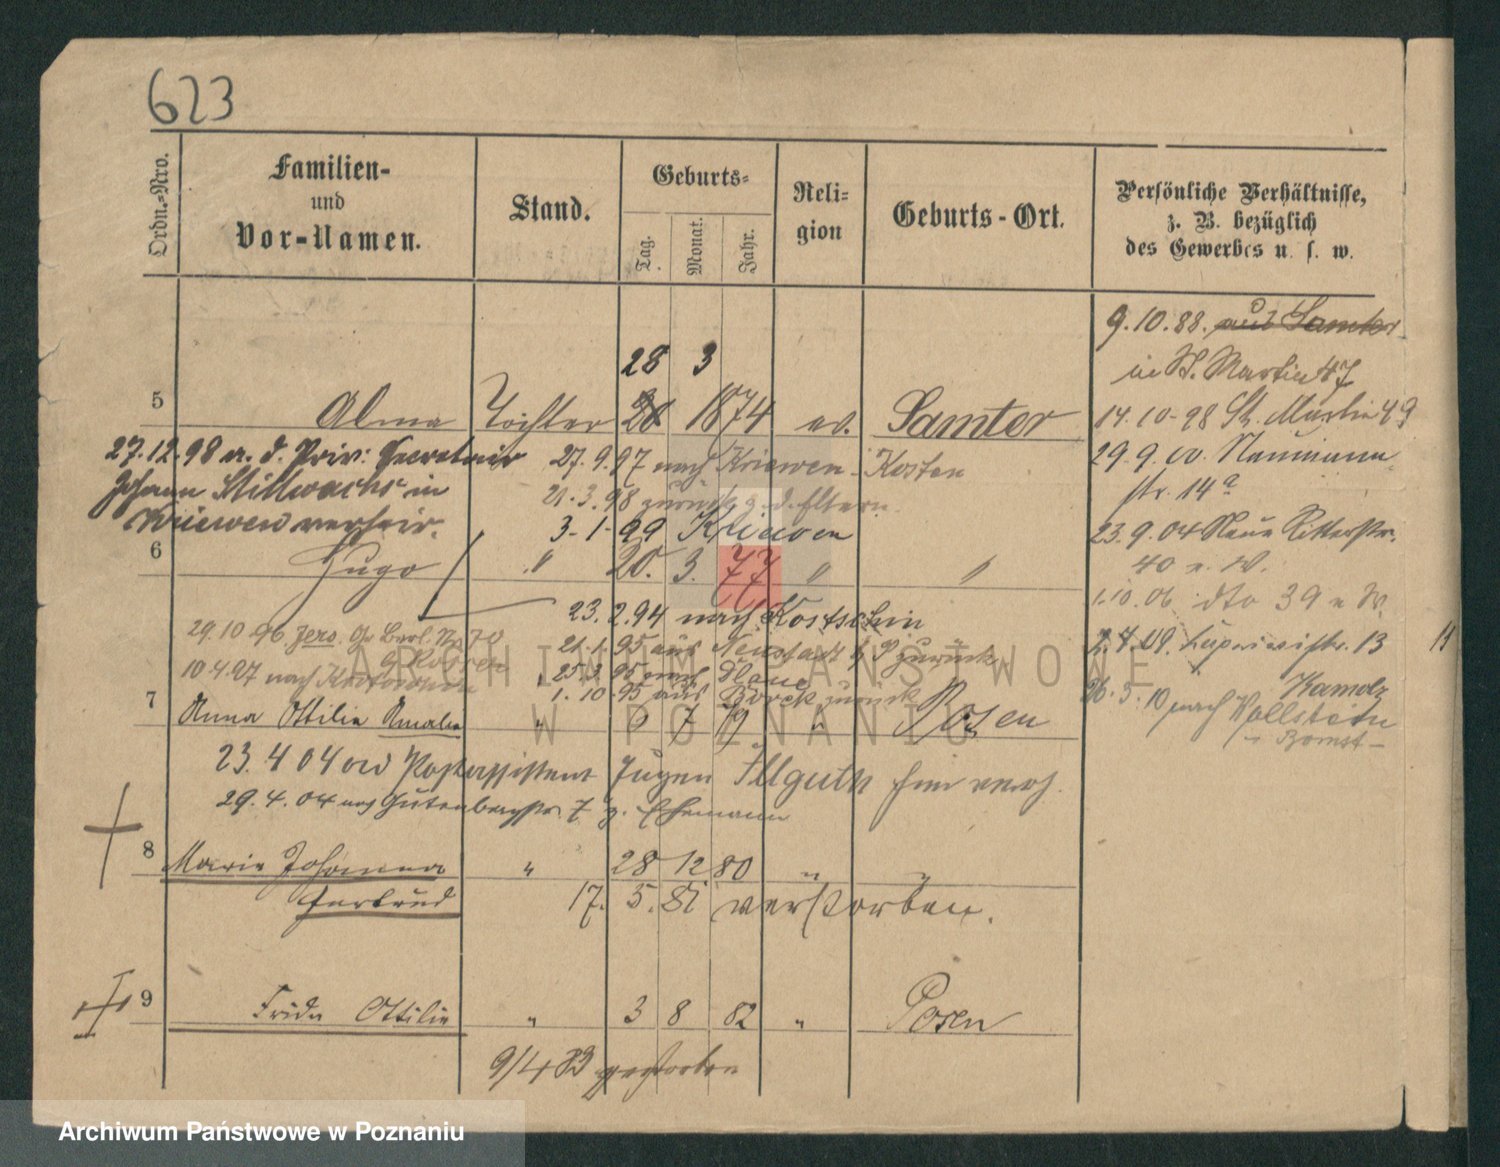 623
Ordn.-Nro.
Familien-
und
Vor-Namen.
Stand.
Geburts-
Tag.
Monat.
Jahr.
Reli-
gion
Geburts-Ort.
Persönliche Verhältnisse,
z. B. bezüglich
des Gewerbes u. s. w.
9.10.88. aus Samter
in St. Martin 47
14.10.98 St. Martin 49
29.9.00. Naumann
str. 14a
23.9.04 Neue Ritterstr.
40 e. W.
1.10.06 dto 39 e W.
2.4.09. str. 13
14
26.3.10 nach Wollstein
- Bomst -
28 3
5 Alma Tochter 28 1874 ev. Samter
27.12.98 m. d. Priv: Secretair
Johann in
Kriewen verheir.
27.9.97 nach Kriewen - Kosten
21.3.98 zurück z. d. Eltern
3-1-99 Kriewen
6 Hugo " 20. 3. 77 " "
23.2.94 nach Kostschin
21.1.95 aus Neustadt zurück
25.3.95 nach
1.10.95 aus Borek zurück
29.10.96
10.4.97 nach
7 Anna Ottilie Amalie " 6 7 79 " Posen
23.4 04 Postassistent Eugen Illguth
29.4.04 nach Gutenbergstr. 7 z. Ehemann
8 Marie Johanna " 28 12 80 " "
Gertrud
17. 5. 81 verstorben.
9 Frida Ottilie " 3 8 82 " Posen
9/4 83 gestorben
ARCHIWUM PAŃSTWOWE
W POZNANIU
Archiwum Państwowe w Poznaniu